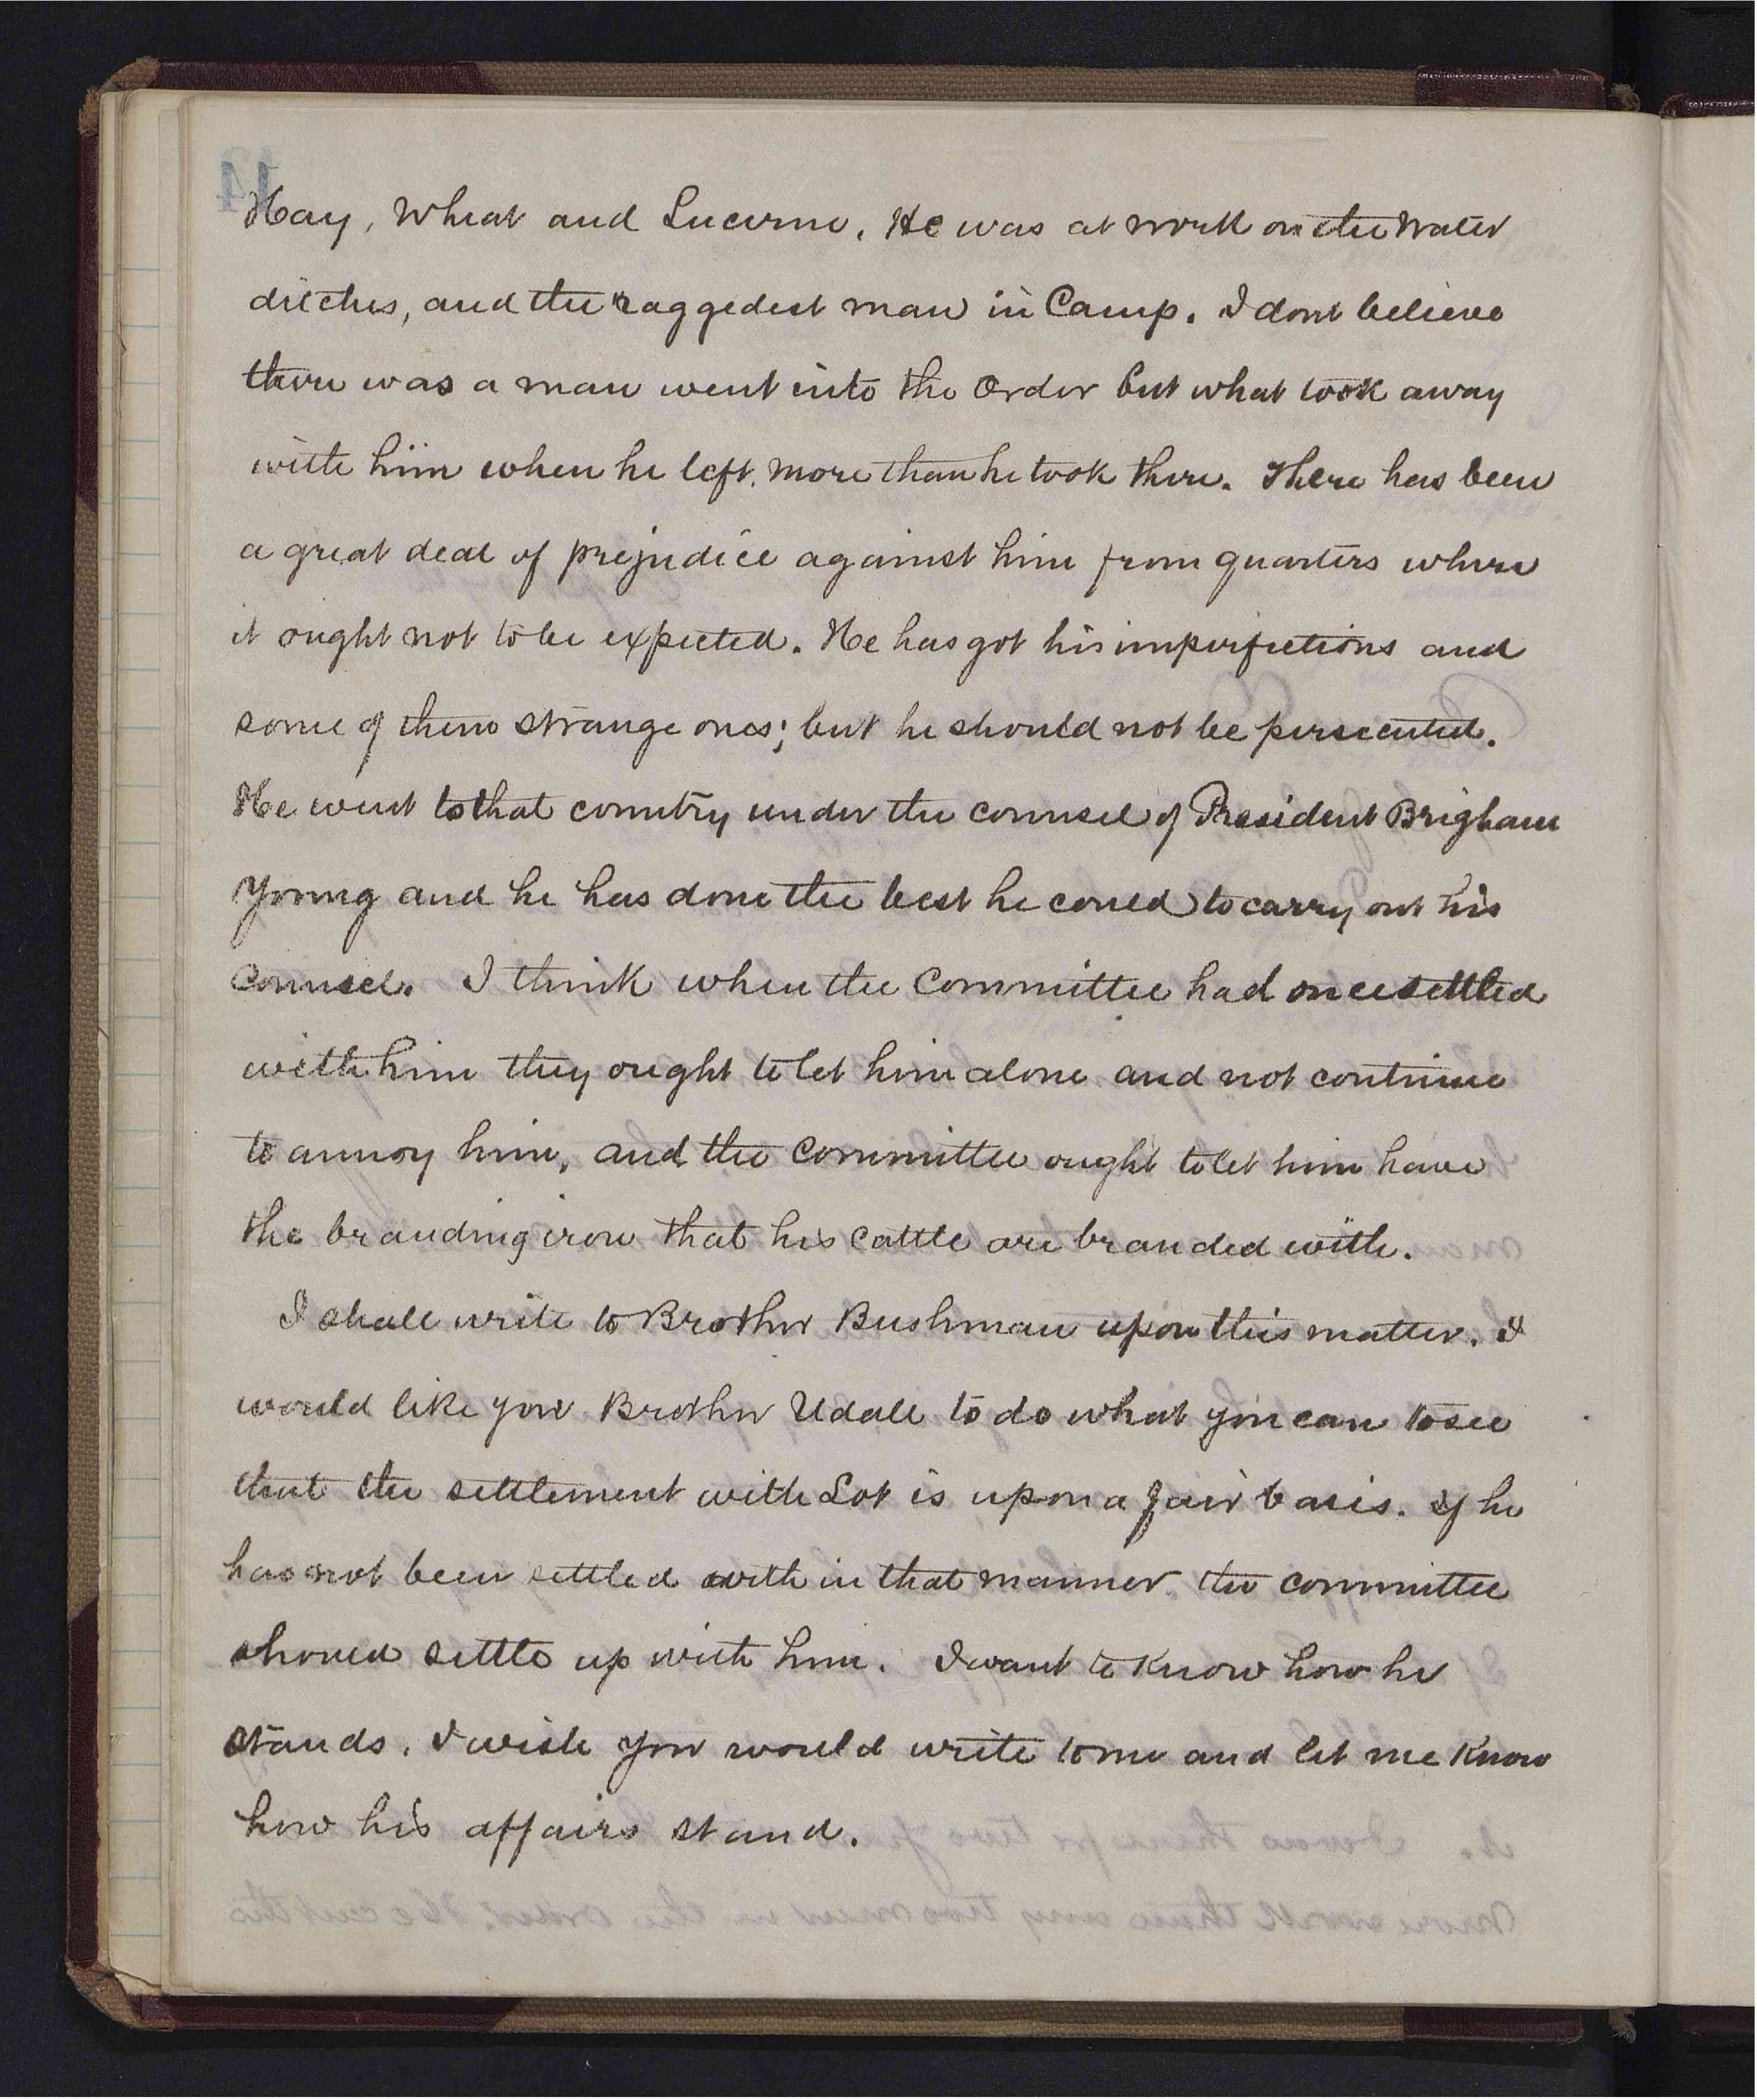 Hay, Wheat and Lucerne. He was at work on the Water
ditches, and the raggedest man in Camp. I dont believe
there was a man went into the Order but what took away
with him when he left, more than he took there. There has been
a great deal of prejudice against him from quarters where
it ought not to be expected. He has got his imperfections and
some of them strange ones; but he should not be persecuted.
He went to that country under the counsel of President Brigham
Young and he has done the best he could to carry out his
counsel. I think when the Committee had once settled
with him they ought to let him alone and not continue
to annoy him, and the Committee ought to let him have
the branding iron that his cattle are branded with.
I shall write to Brother Bushman upon this matter. I
would like you Brother Udall to do what you can to see
that the settlement with Lot is upon a fair basis. If he
has not been settled with in that manner the committee
should settle up with him. I want to know how he
stands. I wish you would write to me and let me know
how his affairs stand.